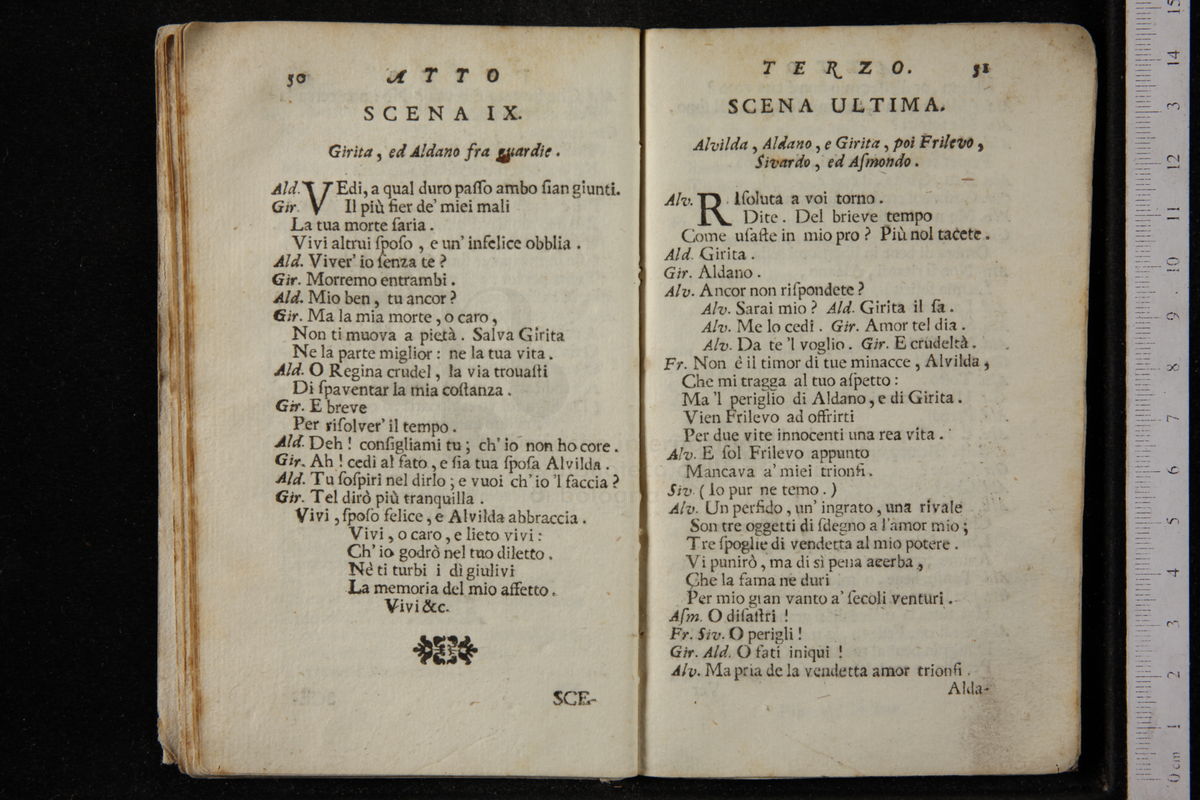 50 ATTO
SCENA IX.
Girita, ed Aldano fra guardie.
Ald. VEdi, a qual duro paſſo ambo ſian giunti.
Gir. Il più fier de' miei mali
La tua morte ſaria.
Vivi altrui ſpoſo, e un' infelice obblia.
Ald. Viver' io ſenza te?
Gir. Morremo entrambi.
Ald. Mio ben, tu ancor?
Gir. Ma la mia morte, o caro,
Non ti muova a pietà. Salva Girita
Ne la parte miglior: ne la tua vita.
Ald. O Regina crudel, la via trovaſti
Di ſpaventar la mia coſtanza.
Gir. E breve
Per riſolver' il tempo.
Ald. Deh! conſigliami tu; ch' io non ho core.
Gir. Ah! cedi al fato, e ſia tua ſpoſa Alvilda.
Ald. Tu ſoſpiri nel dirlo; e vuoi ch' io 'l faccia?
Gir. Tel dirò più tranquilla.
Vivi, ſpoſo felice, e Alvilda abbraccia.
Vivi, o caro, e lieto vivi:
Ch' io godrò nel tuo diletto.
Nè ti turbi i dì giulivi
La memoria del mio affetto.
Vivi &c.
SCE-
TERZO. 51
SCENA ULTIMA.
Alvilda, Aldano, e Girita, poi Frilevo,
Sivardo, ed Aſmondo.
Alv. RIſoluta a voi torno.
Dite. Del brieve tempo
Come uſaſte in mio pro? Più nol tacete.
Ald. Girita.
Gir. Aldano.
Alv. Ancor non riſpondete?
Alv. Sarai mio? Ald. Girita il ſa.
Alv. Me lo cedi. Gir. Amor tel dia.
Alv. Da te 'l voglio. Gir. E crudeltà.
Fr. Non è il timor di tue minacce, Alvilda,
Che mi tragga al tuo aſpetto:
Ma 'l periglio di Aldano, e di Girita.
Vien Frilevo ad offrirti
Per due vite innocenti una rea vita.
Alv. E ſol Frilevo appunto
Mancava a' miei trionfi.
Siv. (Io pur ne temo.)
Alv. Un perfido, un' ingrato, una rivale
Son tre oggetti di ſdegno a l'amor mio;
Tre ſpoglie di vendetta al mio potere.
Vi punirò, ma di sì pena acerba,
Che la fama ne duri
Per mio gran vanto a' ſecoli venturi.
Aſm. O diſaſtri!
Fr. Siv. O perigli!
Gir. Ald. O fati iniqui!
Alv. Ma pria de la vendetta amor trionfi.
Alda-
15
14
13
12
11
10
9
8
7
6
5
4
3
2
1
0 cm